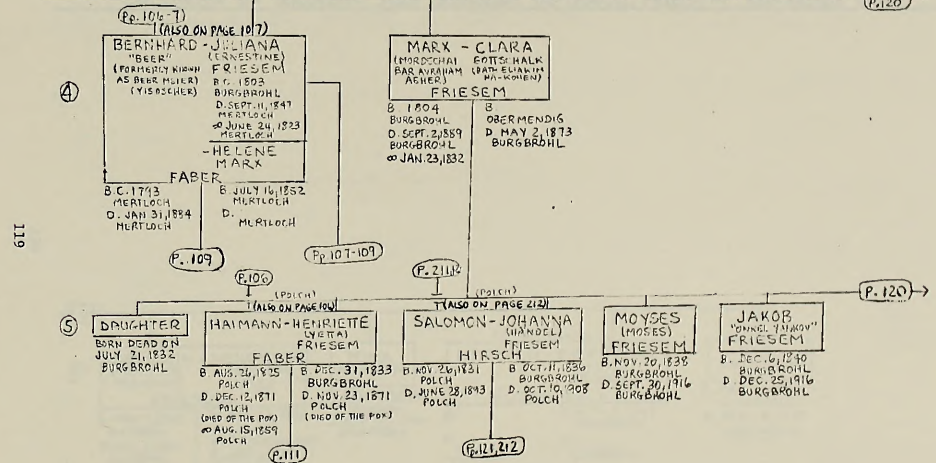 Pp. 106-7
P. 120
(ALSO ON PAGE 107)
BERNHARD - JULIANA
"BEER" (ERNESTINE)
(FORMERLY KNOWN FRIESEM
AS BEER MEIER) B.C. 1803
(YISOSCHER) BURGBROHL
D. SEPT. 11, 1847
MERTLOCH
∞ JUNE 24, 1823
MERTLOCH
- HELENE
MARX
FABER
B.C. 1793
MERTLOCH
D. JAN 31, 1884
MERTLOCH
B. JULY 16, 1852
MERTLOCH
D.
MERTLOCH
P. 109
Pp. 107-109
④
MARX - CLARA
(MORDECHAI GOTTSCHALK
BAR AVRAHAM (BATH ELIAKIM
ASHER) HA-KOHEN)
FRIESEM
B. 1804
BURGBROHL
D. SEPT. 2, 1889
BURGBROHL
∞ JAN. 23, 1832
B
OBERMENDIG
D MAY 2, 1873
BURGBROHL
119
P. 106
P. 211,12
(POLCH)
(POLCH)
P. 120
⑤
DAUGHTER
BORN DEAD ON
JULY 21, 1832
BURGBROHL
(ALSO ON PAGE 106)
HAIMANN - HENRIETTE
(YETTA)
FRIESEM
FABER
B. AUG. 26, 1825
POLCH
D. DEC. 12, 1871
POLCH
(DIED OF THE POX)
∞ AUG. 15, 1859
POLCH
B. DEC. 31, 1833
BURGBROHL
D. NOV. 23, 1871
POLCH
(DIED OF THE POX)
P. 111
(ALSO ON PAGE 212)
SALOMON - JOHANNA
(HANDEL)
FRIESEM
HIRSCH
B. NOV. 26, 1831
POLCH
D. JUNE 28, 1893
POLCH
B. OCT. 11, 1836
BURGBROHL
D. OCT. 10, 1908
POLCH
P. 121, 212
MOYSES
(MOSES)
FRIESEM
B. NOV. 20, 1838
BURGBROHL
D. SEPT. 30, 1916
BURGBROHL
JAKOB
"ONKEL YANKOV"
FRIESEM
B. DEC. 6, 1840
BURGBROHL
D. DEC. 25, 1916
BURGBROHL